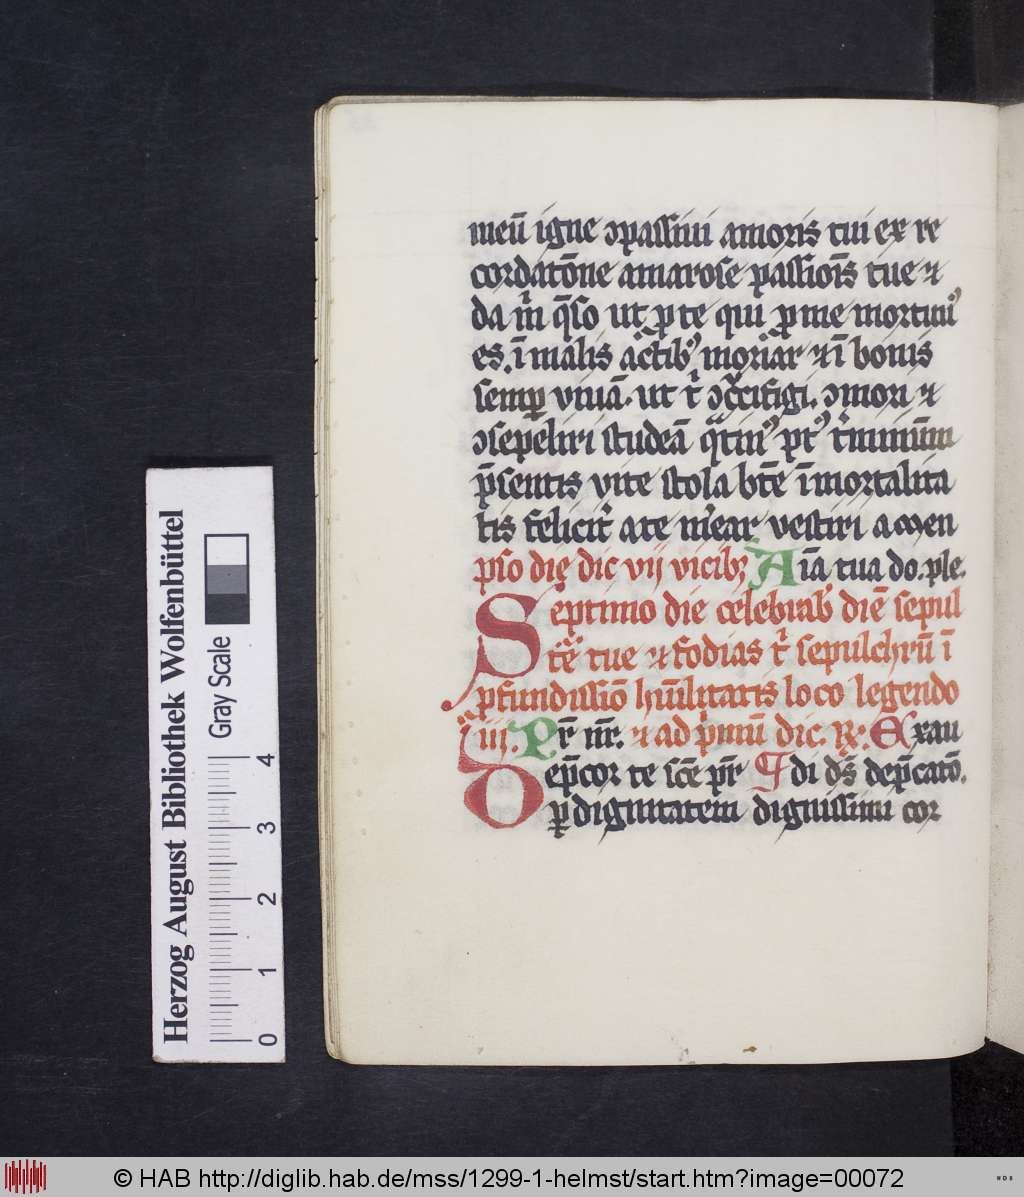 meū igne ɔpassiui amoris tui ex re
cordatōne amarose passiōis tue ⁊
da m̄ q̄so ut ꝑ te qui ꝑ me mortuuꝰ
es. ī malis actibꝰ moriar ⁊ ī bonis
semꝑ viuā. ut t̄ ɔcrifigi. ɔmori ⁊
ɔsepeliri studeā qtinꝰ pꝰ t̄minūm
p̄sentis vite stola btē īmortalita
tis feliciť a te mear vestiri amen
pſo die dic vij vicibꝫ Aīa tua do. ple.
Septimo die celebrab diē sepul
tē tue ⁊ fodias t̄ sepulchrū ī
pfundissiō hūilitatis loco legendo
iij. Pr̄ nr̄. ⁊ ad pmū dic. R. Exau
Dep̄cor te scē pr̄ di dꝰ dep̄catō.
ꝑ dignitatem dignissimi cor
Herzog August Bibliothek Wolfenbüttel
Gray Scale
0 1 2 3 4
© HAB http://diglib.hab.de/mss/1299-1-helmst/start.htm?image=00072